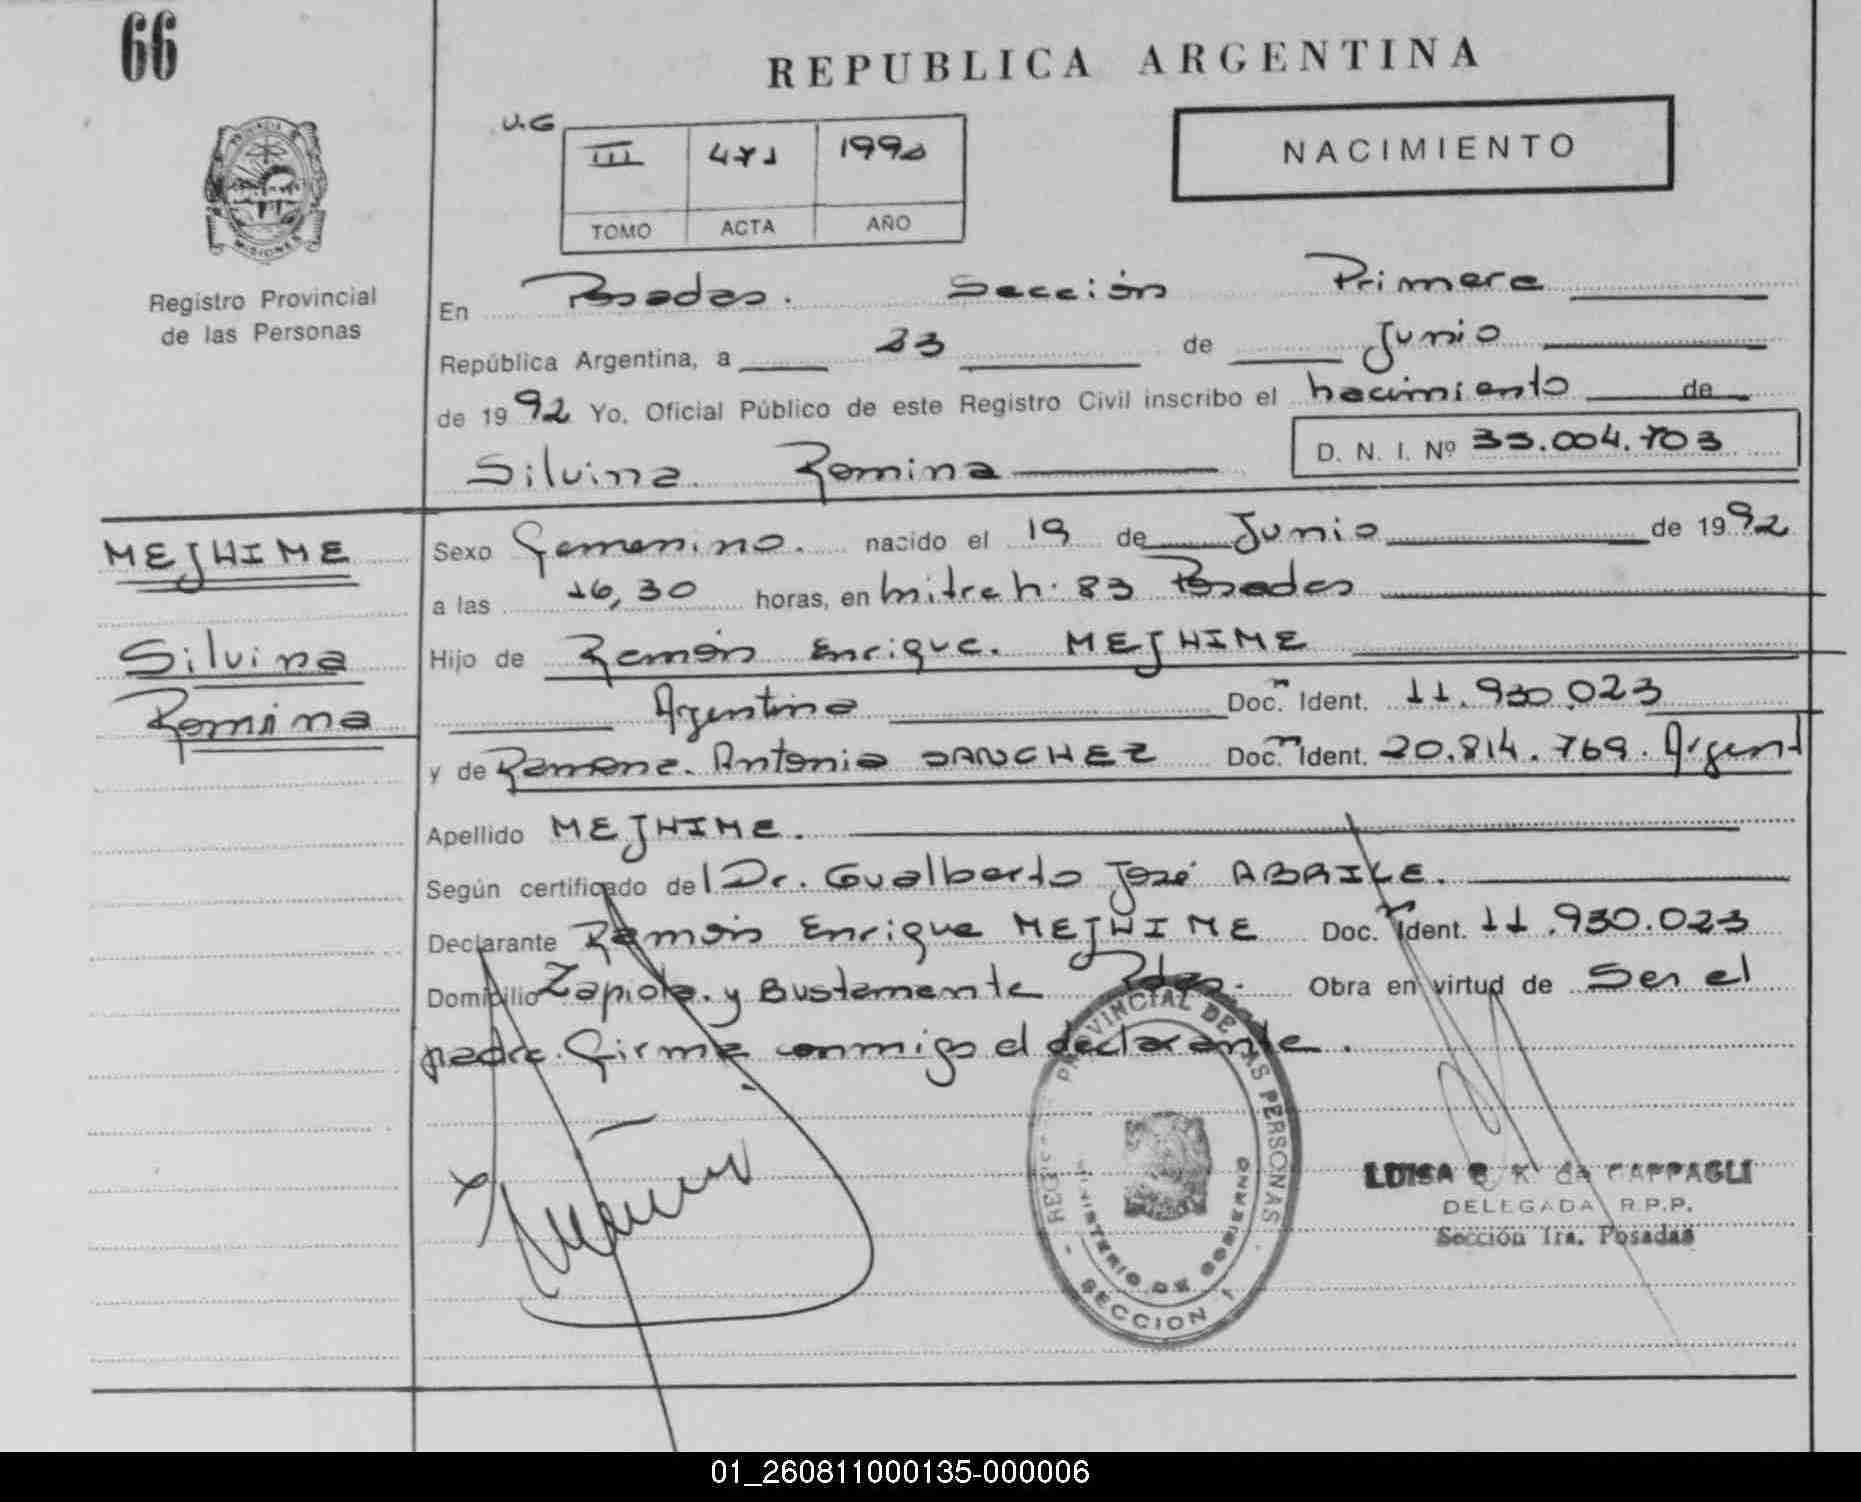 66
REPUBLICA ARGENTINA
U.G
III 471 1992
TOMO ACTA AÑO
NACIMIENTO
PROVINCIA DE
MISIONES
Registro Provincial
de las Personas
En Posadas. Sección Primera
República Argentina, a 23 de Junio
de 1992 Yo, Oficial Público de este Registro Civil inscribo el nacimiento de
Silvina Romina D. N. I. Nº 33.004.703
MEJHIME
Silvina
Romina
Sexo Femenino. nacido el 19 de Junio de 1992
a las 16,30 horas, en Mitre h. 83 Posadas
Hijo de Ramón Enrique. MEJHIME
Argentino Doc. Ident. 11.930.023
y de Ramona. Antonia SANCHEZ Doc. Ident. 20.814.769. Argent
Apellido MEJHIME.
Según certificado del Dr. Gualberto José ABRILE.
Declarante Ramón Enrique MEJHIME Doc. Ident. 11.930.023
Domicilio Zapiola. y Bustamente Pdas. Obra en virtud de Ser el
padre. Firma conmigo el declarante.
PROVINCIAL DE LAS PERSONAS
MINISTERIO DE GOBIERNO
SECCION 1
LUISA de CAPPAGLI
DELEGADA R.P.P.
Sección 1ra. Posadas
01_260811000135-000006